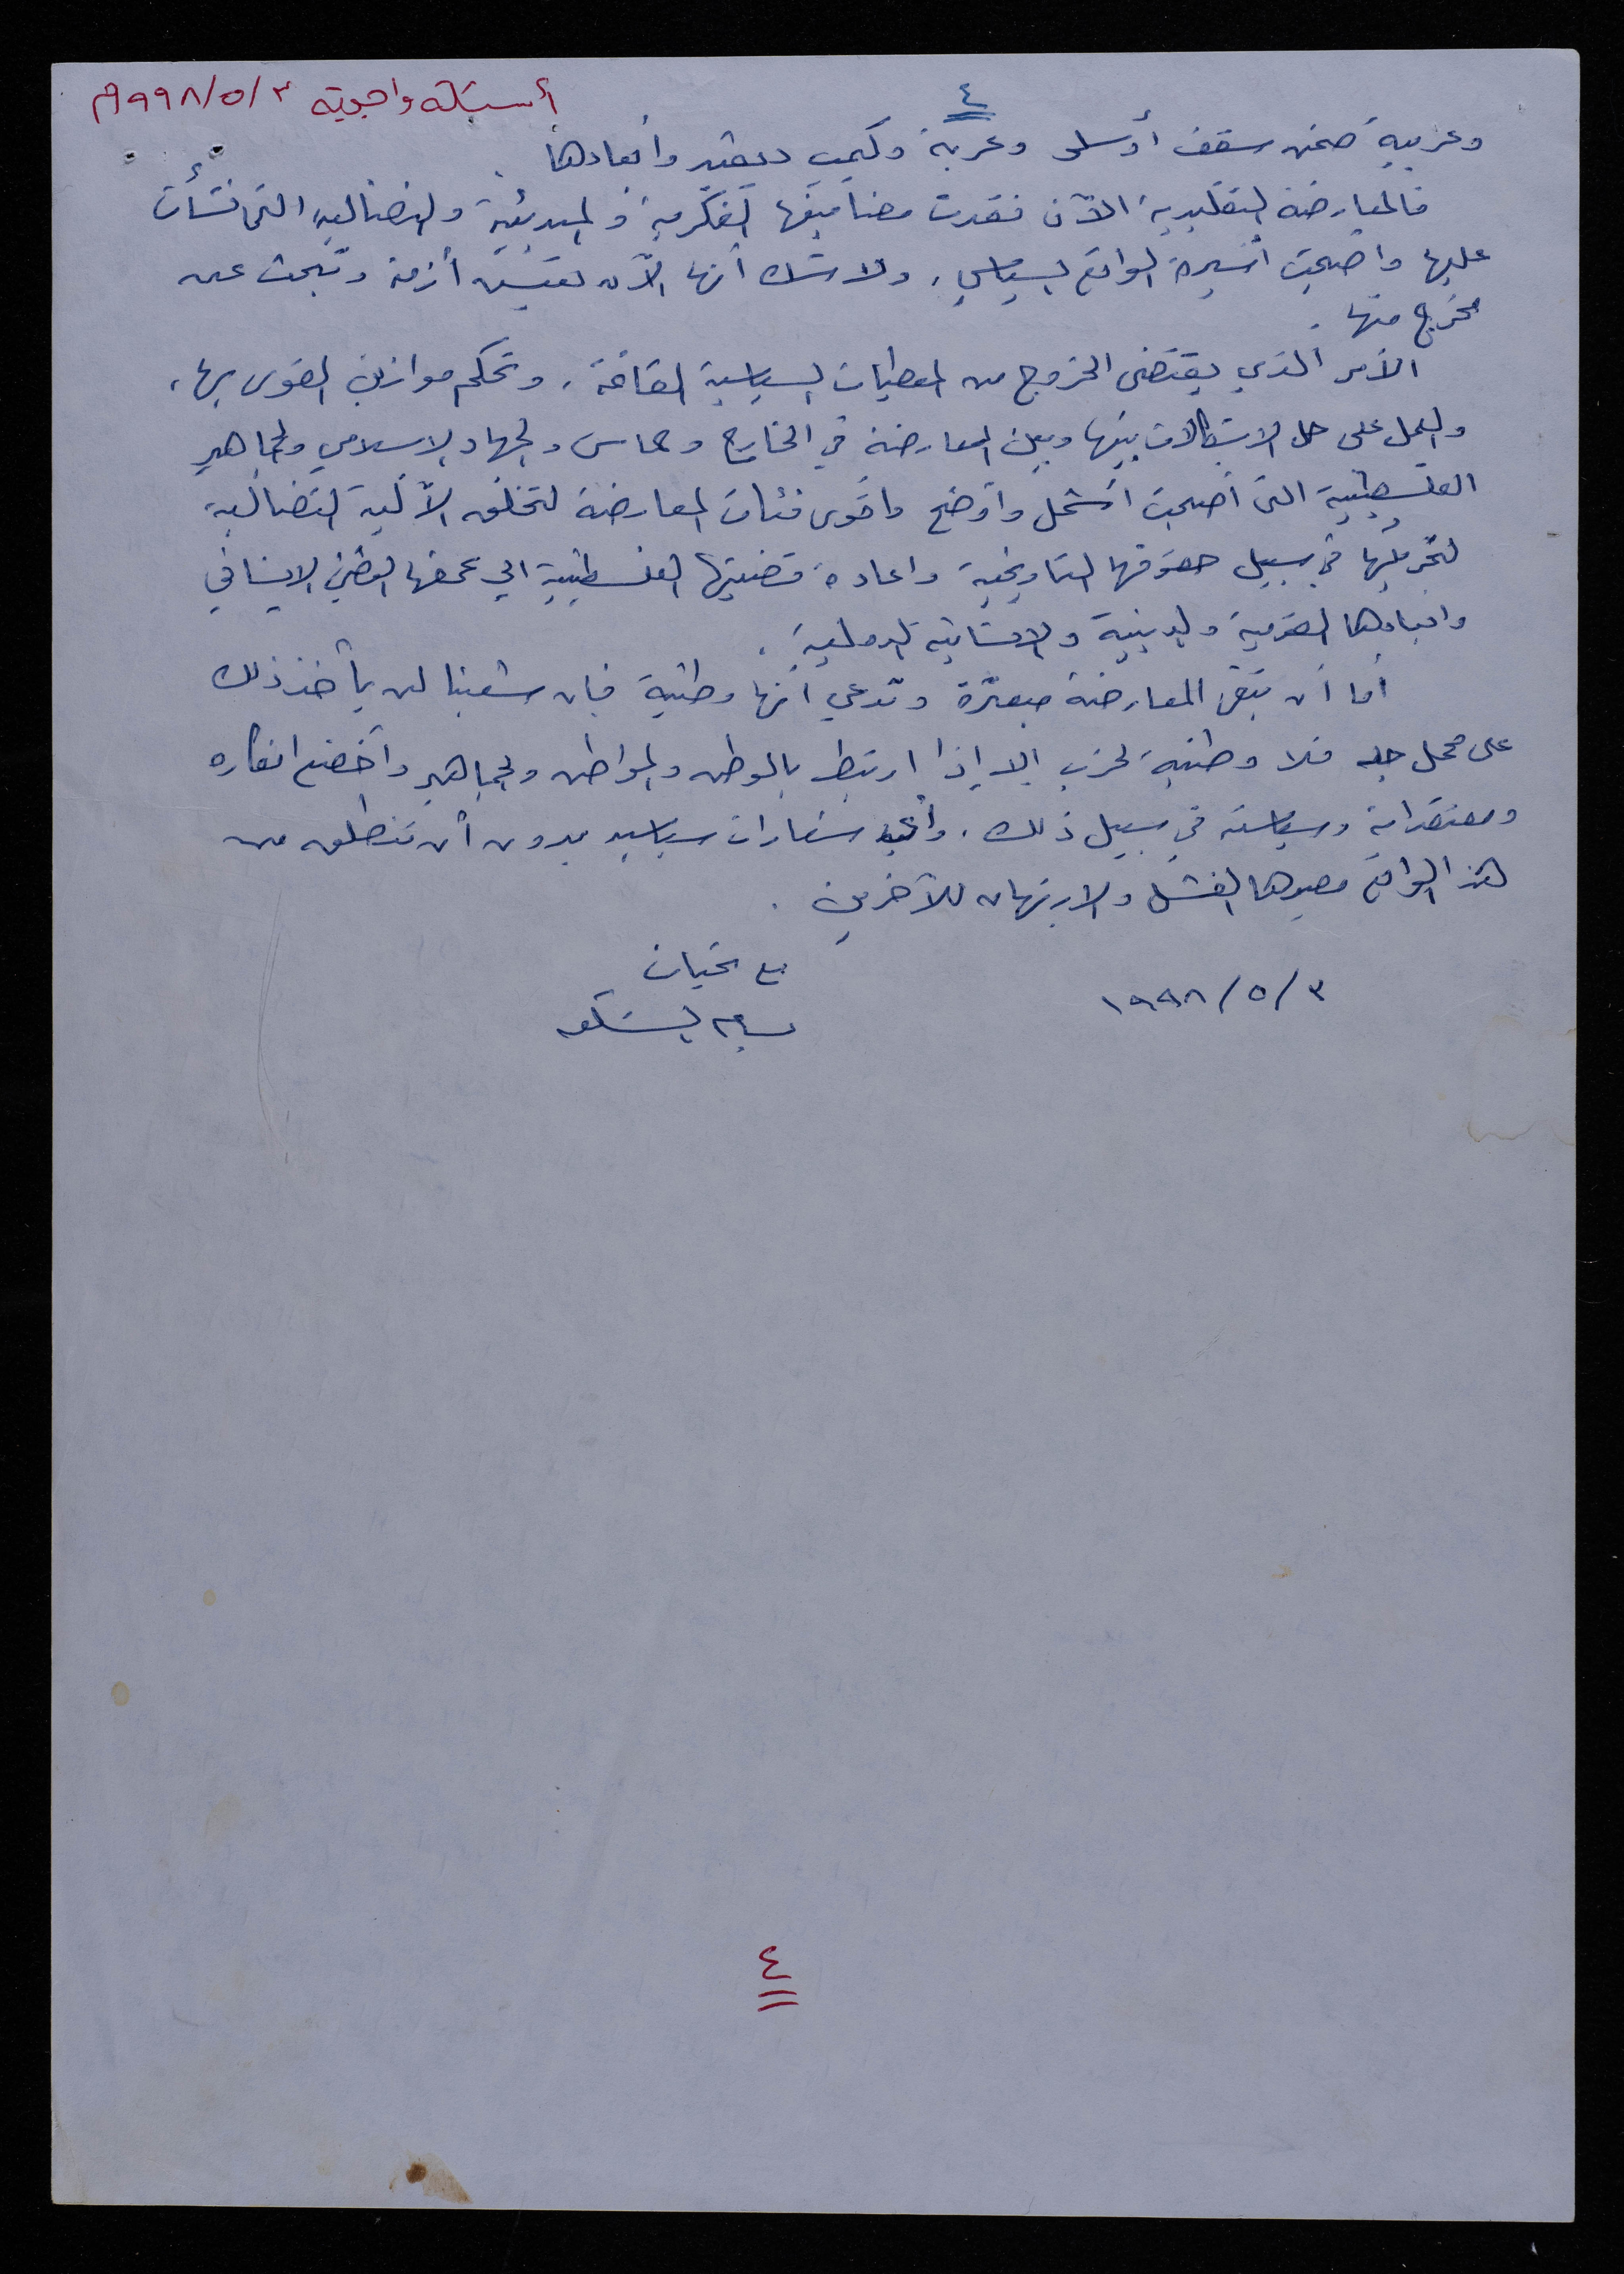 أسئلة واجوبة ٣/٥/١٩٩٨م
٤
وعربية ضمن سقف أوسلو وعربة وكمب ديفيد وأبعادها .
فالمعارضة التقليدية الآن فقدت مضامينها الفكرية والمبدئية والنضالية التي نشأت
عليها واصبحت أسيرة الواقع السياسي، ولا شك أنها الآن تعيش أزمة وتبحث عن
مخرج منها .
الأمر الذي يقتضى الخروج من المعطيات السياسية القائمة، وتحكم موازين القوى بها،
والعمل على حل الاشكالات بينها وبين المعارضة في الخارج وحماس والجهاد الاسلامي والجماهير
الفلسطينية التي أصبحت أشمل وأوضح وأقوى فئات المعارضة لتخلق الآلية النضالية
لتحريكها في سبيل حقوقها التاريخية واعادة قضيتها الفلسطينية الى عمقها الوطني الانساني
وابعادها القومية والدينية والانسانية الدولية .
أما أن تبقى المعارضة مبعثرة وتدعي أنها وطنية فان شعبنا لن يأخذ ذلك
على محمل جد فلا وطنية لحزب إلا إذا ارتبط بالوطن والمواطن والجماهير وأخضع افكاره
ومعتقداته وسياسته في سبيل ذلك، وأية شعارات سياسية بدون أن تنطلق من
هذا الواقع مصيرها الفشل والارتهان للآخرين .
مع تحيات
٣/٥/١٩٩٨
بسام الشكعه
٤